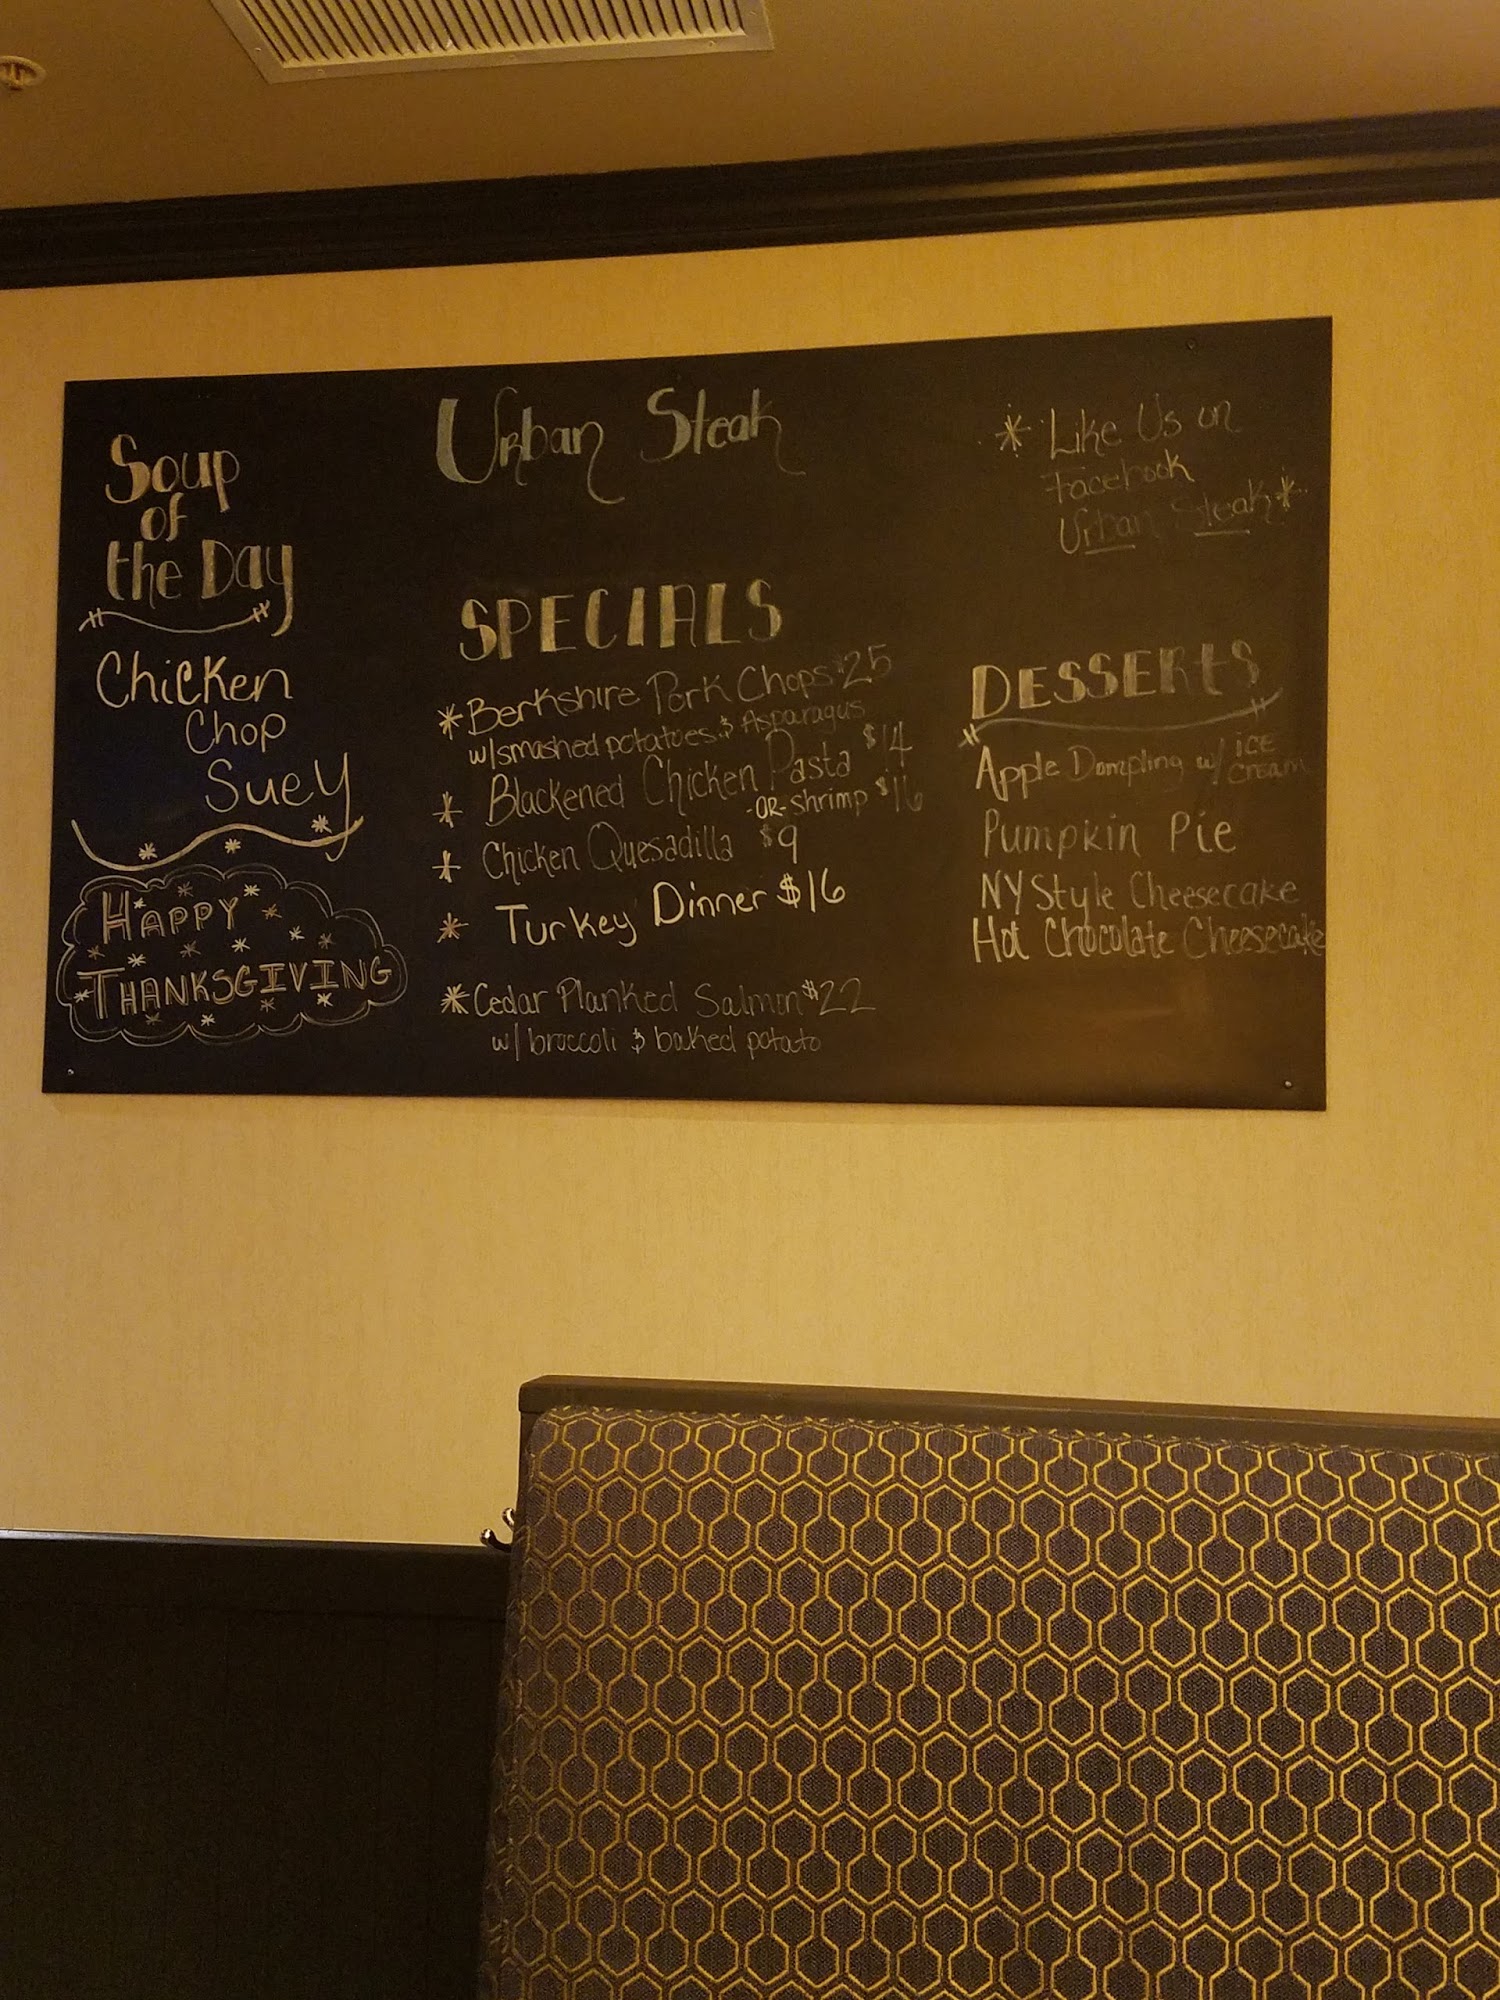 Urban Steak
Soup
of
the Day
Chicken
Chop
Suey
Happy
Thanksgiving
SPECIALS
* Berkshire Pork Chops $25
w/smashed potatoes & Asparagus
* Blackened Chicken Pasta $14
-OR- Shrimp $16
* Chicken Quesadilla $9
* Turkey Dinner $16
* Cedar Planked Salmon $22
w/ broccoli & baked potato
* Like Us on
Facebook
Urban Steak *
DESSERts
Apple Dumpling w/ ICE
Cream
Pumpkin Pie
NY Style Cheesecake
Hot Chocolate Cheesecake